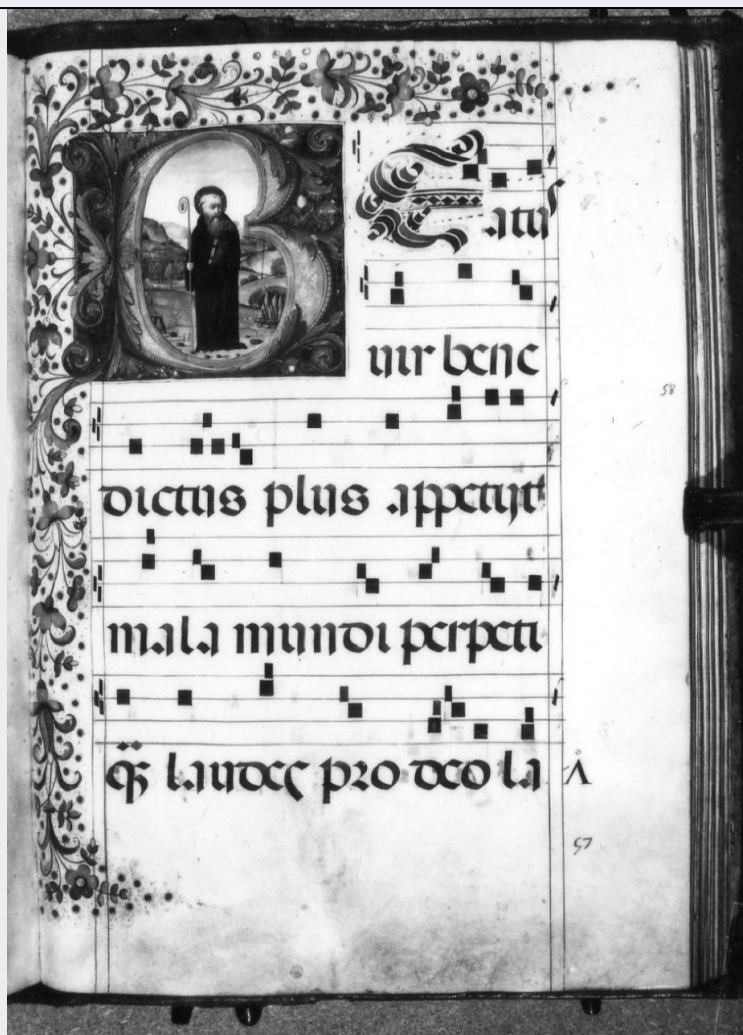 BEatus
uir bene
58
dictus plus appetiit
mala mundi perpeti
q̃ꝫ laudes pro deo la
A
57